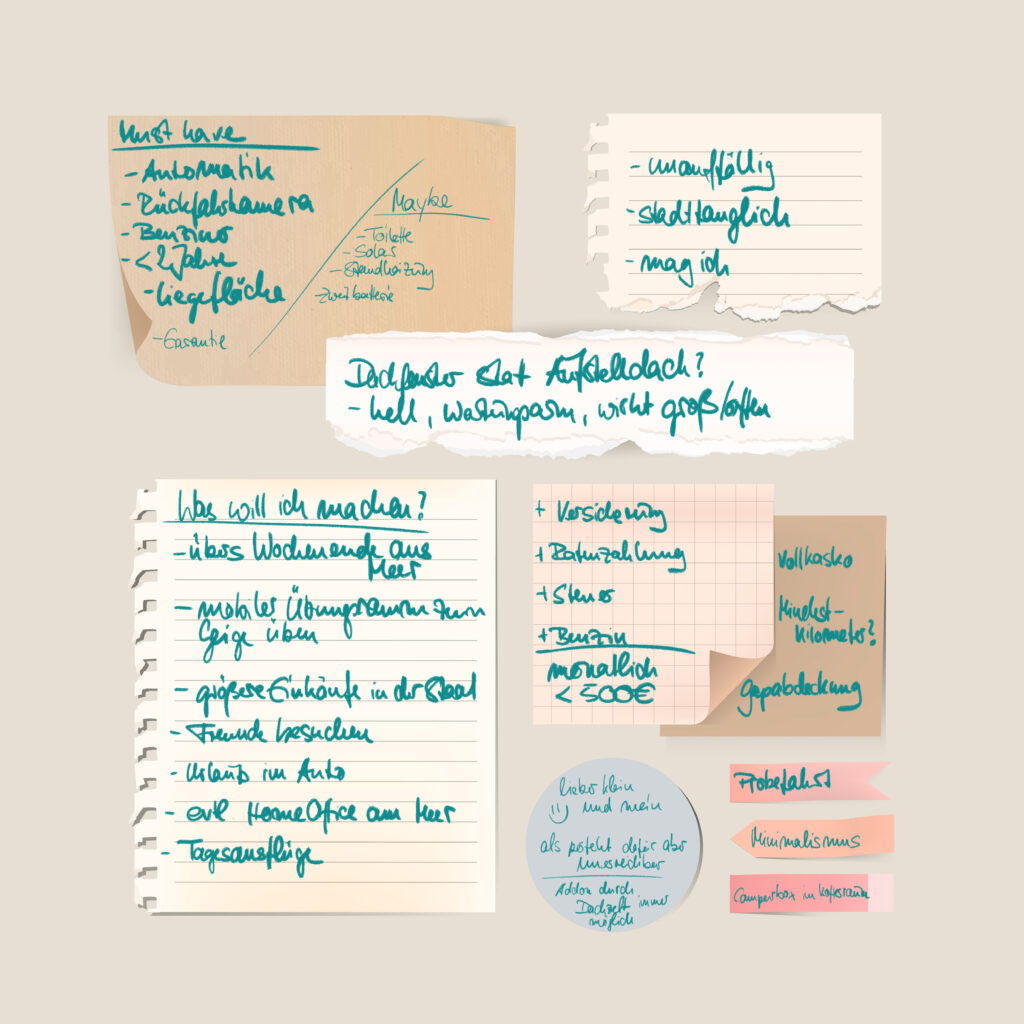 Must have
- Automatik
- Rückfahrkamera
- Benziner
- < 2 Jahre
- Liegefläche
- Garantie
Maybe
- Toilette
- Solar
- Standheizung
- Zweitbatterie
- unauffällig
- stadttauglich
- mag ich
Dachfenster statt Aufstelldach?
- hell, wirkt groß/offen
Was will ich machen?
- übers Wochenende ans
Meer
- mobiler Übungsraum zum
Geige üben
- größere Einkäufe in der Stadt
- Freunde besuchen
- Urlaub im Auto
- evtl HomeOffice am Meer
- Tagesausflüge
+ Versicherung
+ Ratenzahlung
+ Steuer
+ Benzin
monatlich
< 500€
Vollkasko
Mindest-
kilometer?
gapabdeckung
lieber klein
:) und mein
als perfekt dafür aber
unerreichbar
Addon durch
Dachzelt immer
möglich
Probefahrt
Minimalismus
Camperbox im Kofferraum